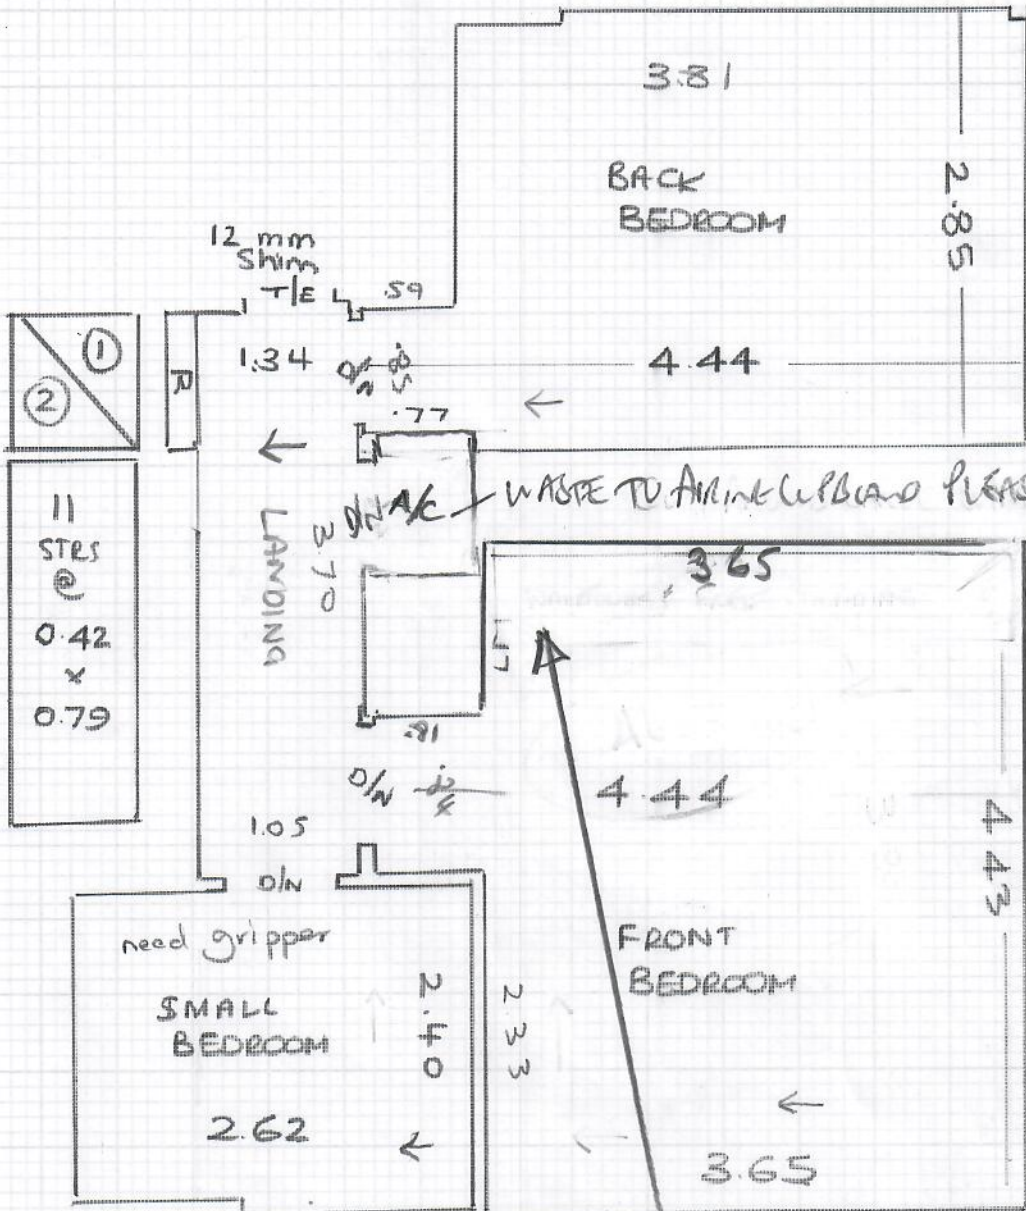 3.81
BACK
BEDROOM
2.85
12 mm
Shim
T/E
.59
1
2
R
1.34
D/N
.85
4.44
.77
LANDING
3.70
D/N
A/C
WASTE TO AIRING CUPBOARD PLEAS
11
STRS
@
0.42
x
0.79
3.65
.81
D/N
4.44
4.43
1.05
D/N
need gripper
SMALL
BEDROOM
2.40
2.33
2.62
FRONT
BEDROOM
3.65